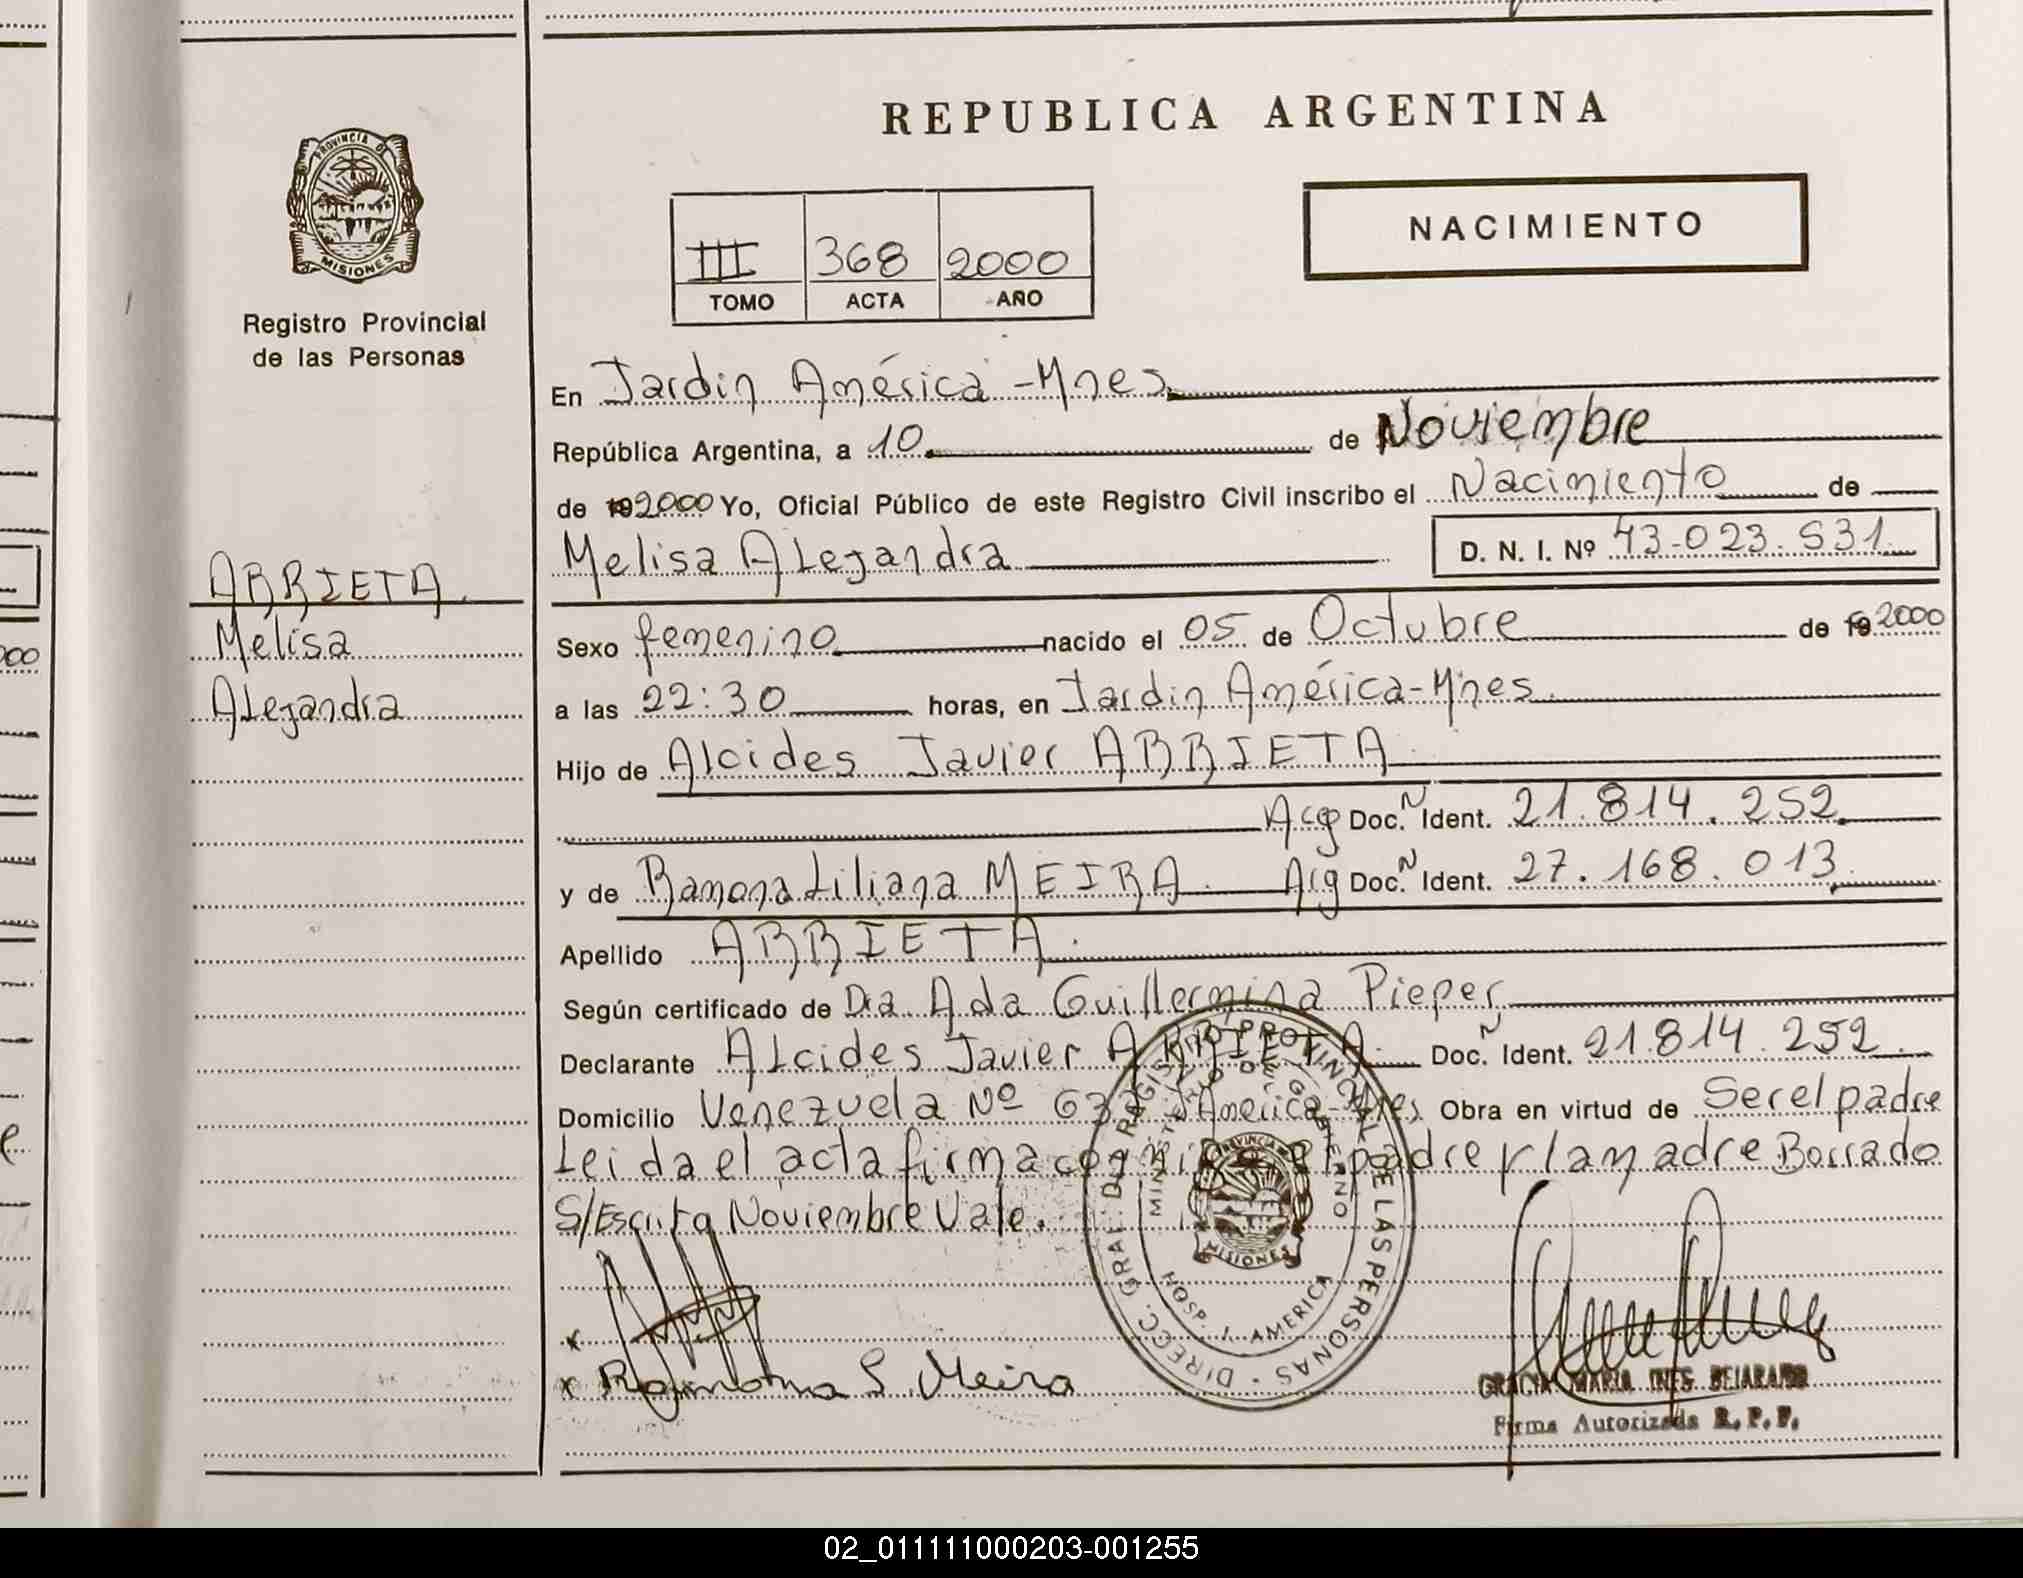 REPUBLICA ARGENTINA
PROVINCIA DE
MISIONES
Registro Provincial
de las Personas
NACIMIENTO
III 368 2000
TOMO ACTA AÑO
En Jardin América - Mnes
República Argentina, a 10 de Noviembre
de 19 2000 Yo, Oficial Público de este Registro Civil inscribo el Nacimiento de
Melisa Alejandra D. N. I. Nº 43.023.531
ARRIETA.
Melisa
Alejandra
Sexo femenino nacido el 05 de Octubre de 19 2000
a las 22:30 horas, en Jardin América - Mnes.
Hijo de Alcides Javier ARRIETA.
Arg Doc. N Ident. 21.814.252.
y de Ramona Liliana MEIRA. Arg Doc. N Ident. 27.168.013.
Apellido ARRIETA.
Según certificado de Dra. Ada Guillermina Pieper
Declarante Alcides Javier ARRIETA. Doc. N Ident. 21.814.252.
Domicilio Venezuela Nº J. America - Mnes Obra en virtud de Ser el padre
Leida el acta firma conmigo el padre y la madre Borrado
S/Escrita Noviembre Vale.
DIRECC. GRAL. DEL REGISTRO PROVINCIAL DE LAS PERSONAS
MINISTERIO DE GOBIERNO
PROVINCIA DE
MISIONES
HOSP. J. AMERICA
x
x Ramona L Meira
GRACIA MARIA INES BEJARANO
Firma Autorizada R. P. P.
02_011111000203-001255